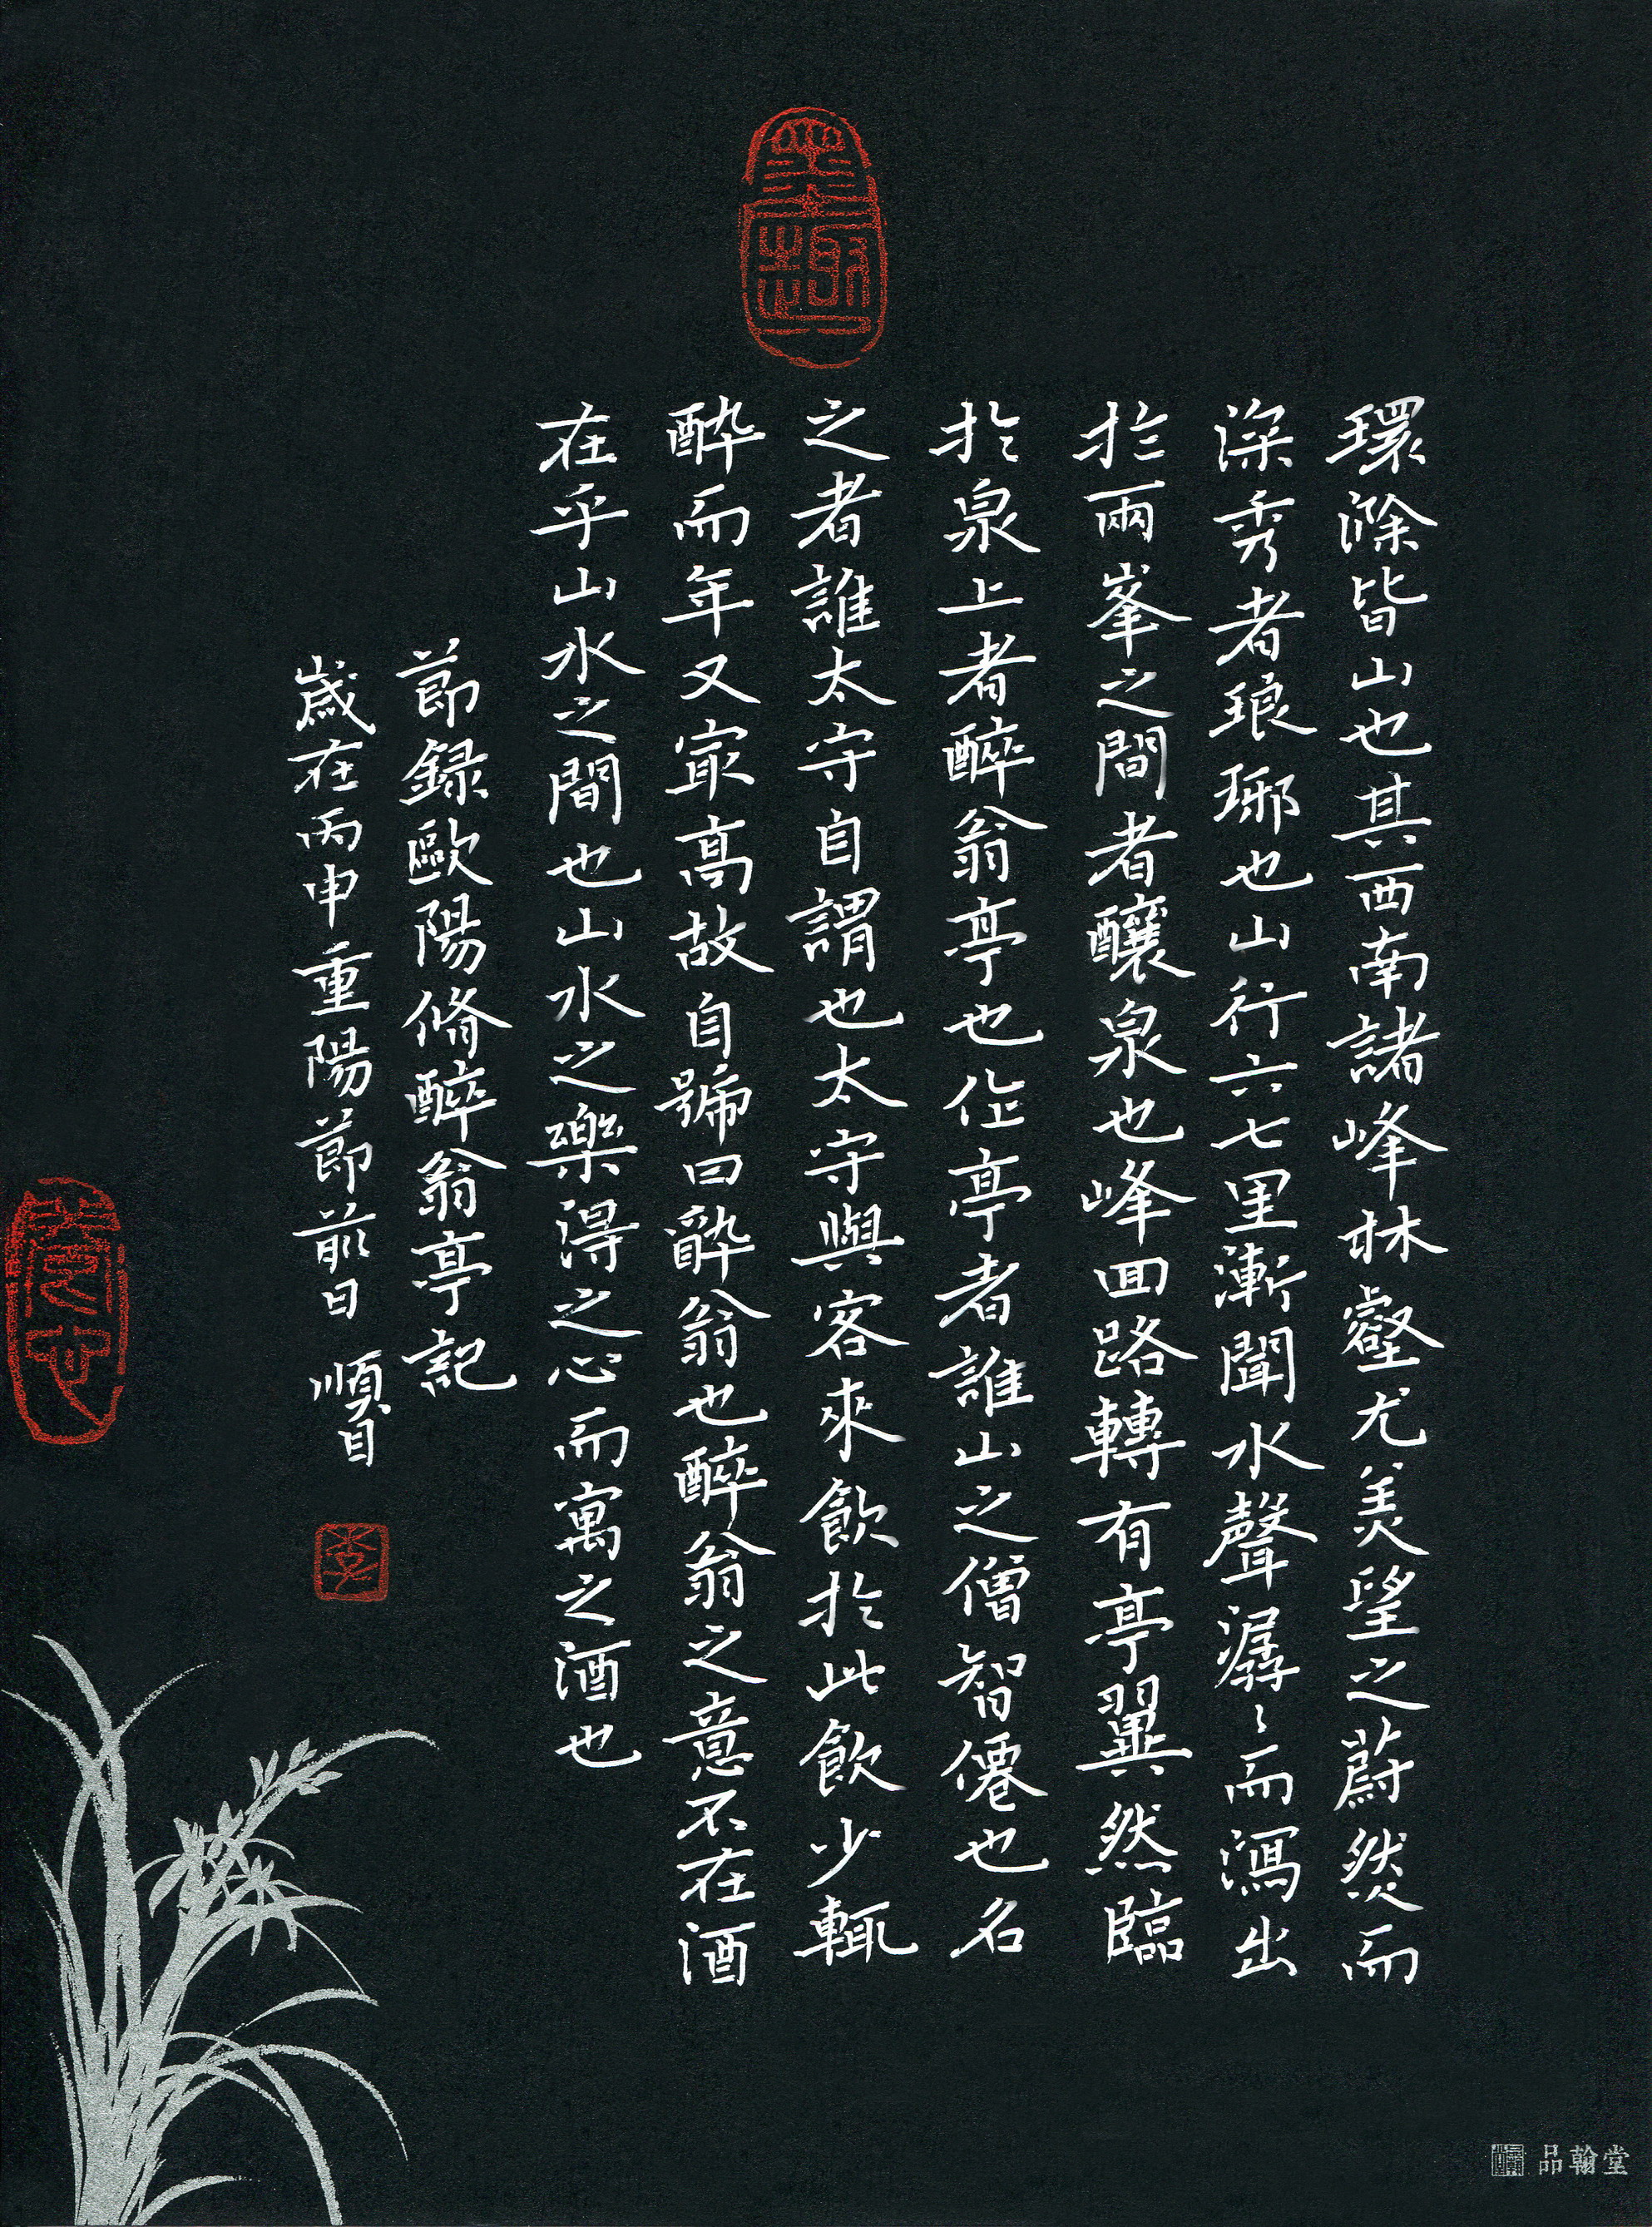 墨趣
環滁皆山也其西南諸峰林壑尤美望之蔚然而
深秀者琅琊也山行六七里漸聞水聲潺〻而瀉出
於兩峯之間者釀泉也峰回路轉有亭翼然臨
於泉上者醉翁亭也作亭者誰山之僧智僊也名
之者誰太守自謂也太守與客來飲於此飲少輒
醉而年又寂高故自號曰醉翁也醉翁之意不在酒
在乎山水之間也山水之樂得之心而寓之酒也
節録歐陽脩醉翁亭記
歲在丙申重陽節前日 順
李
品翰堂